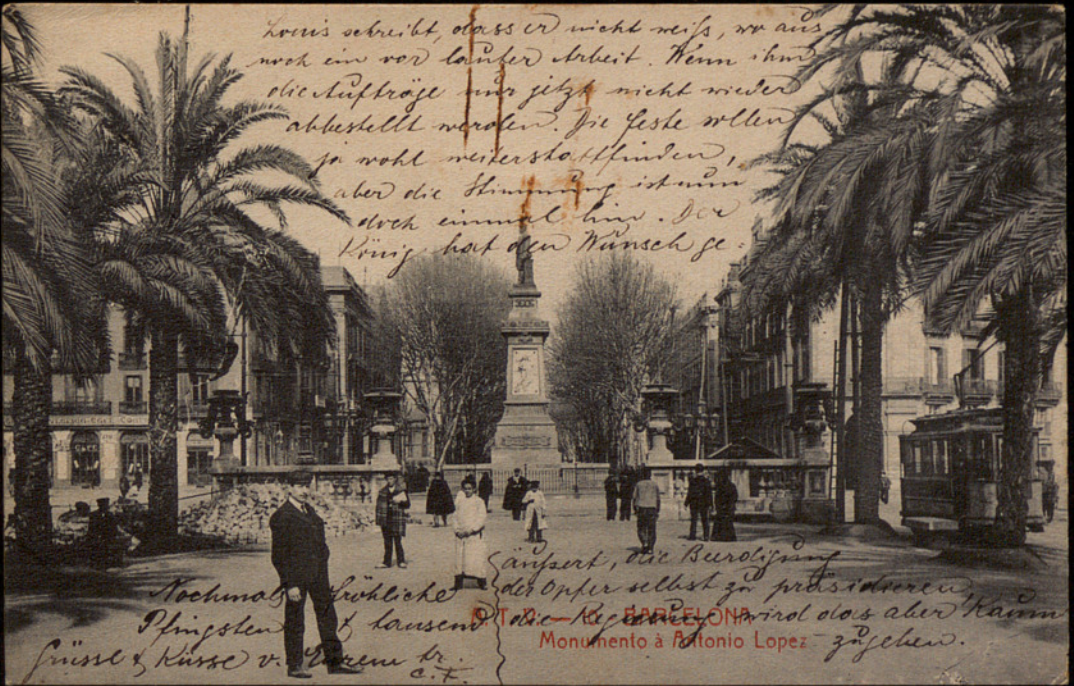 Louis schreibt, dass er nicht weiß, wo aus
noch ein vor lauter Arbeit. Wenn ihm
die Aufträge nur jetzt nicht wieder
abbestellt werden. Die Feste sollen
ja wohl weiterstattfinden,
aber die Stimmung ist nun
doch einmal hin. Der
König hat den Wunsch ge-
äußert, die Beerdigung
der Opfer selbst zu präsidieren,
die Regierung wird das aber kaum
zugeben.
Nochmals fröhliche
Pfingsten & tausend
Grüsse & Küsse v. Eurem tr.
C.F.
BARCELONA
Monumento à Antonio Lopez